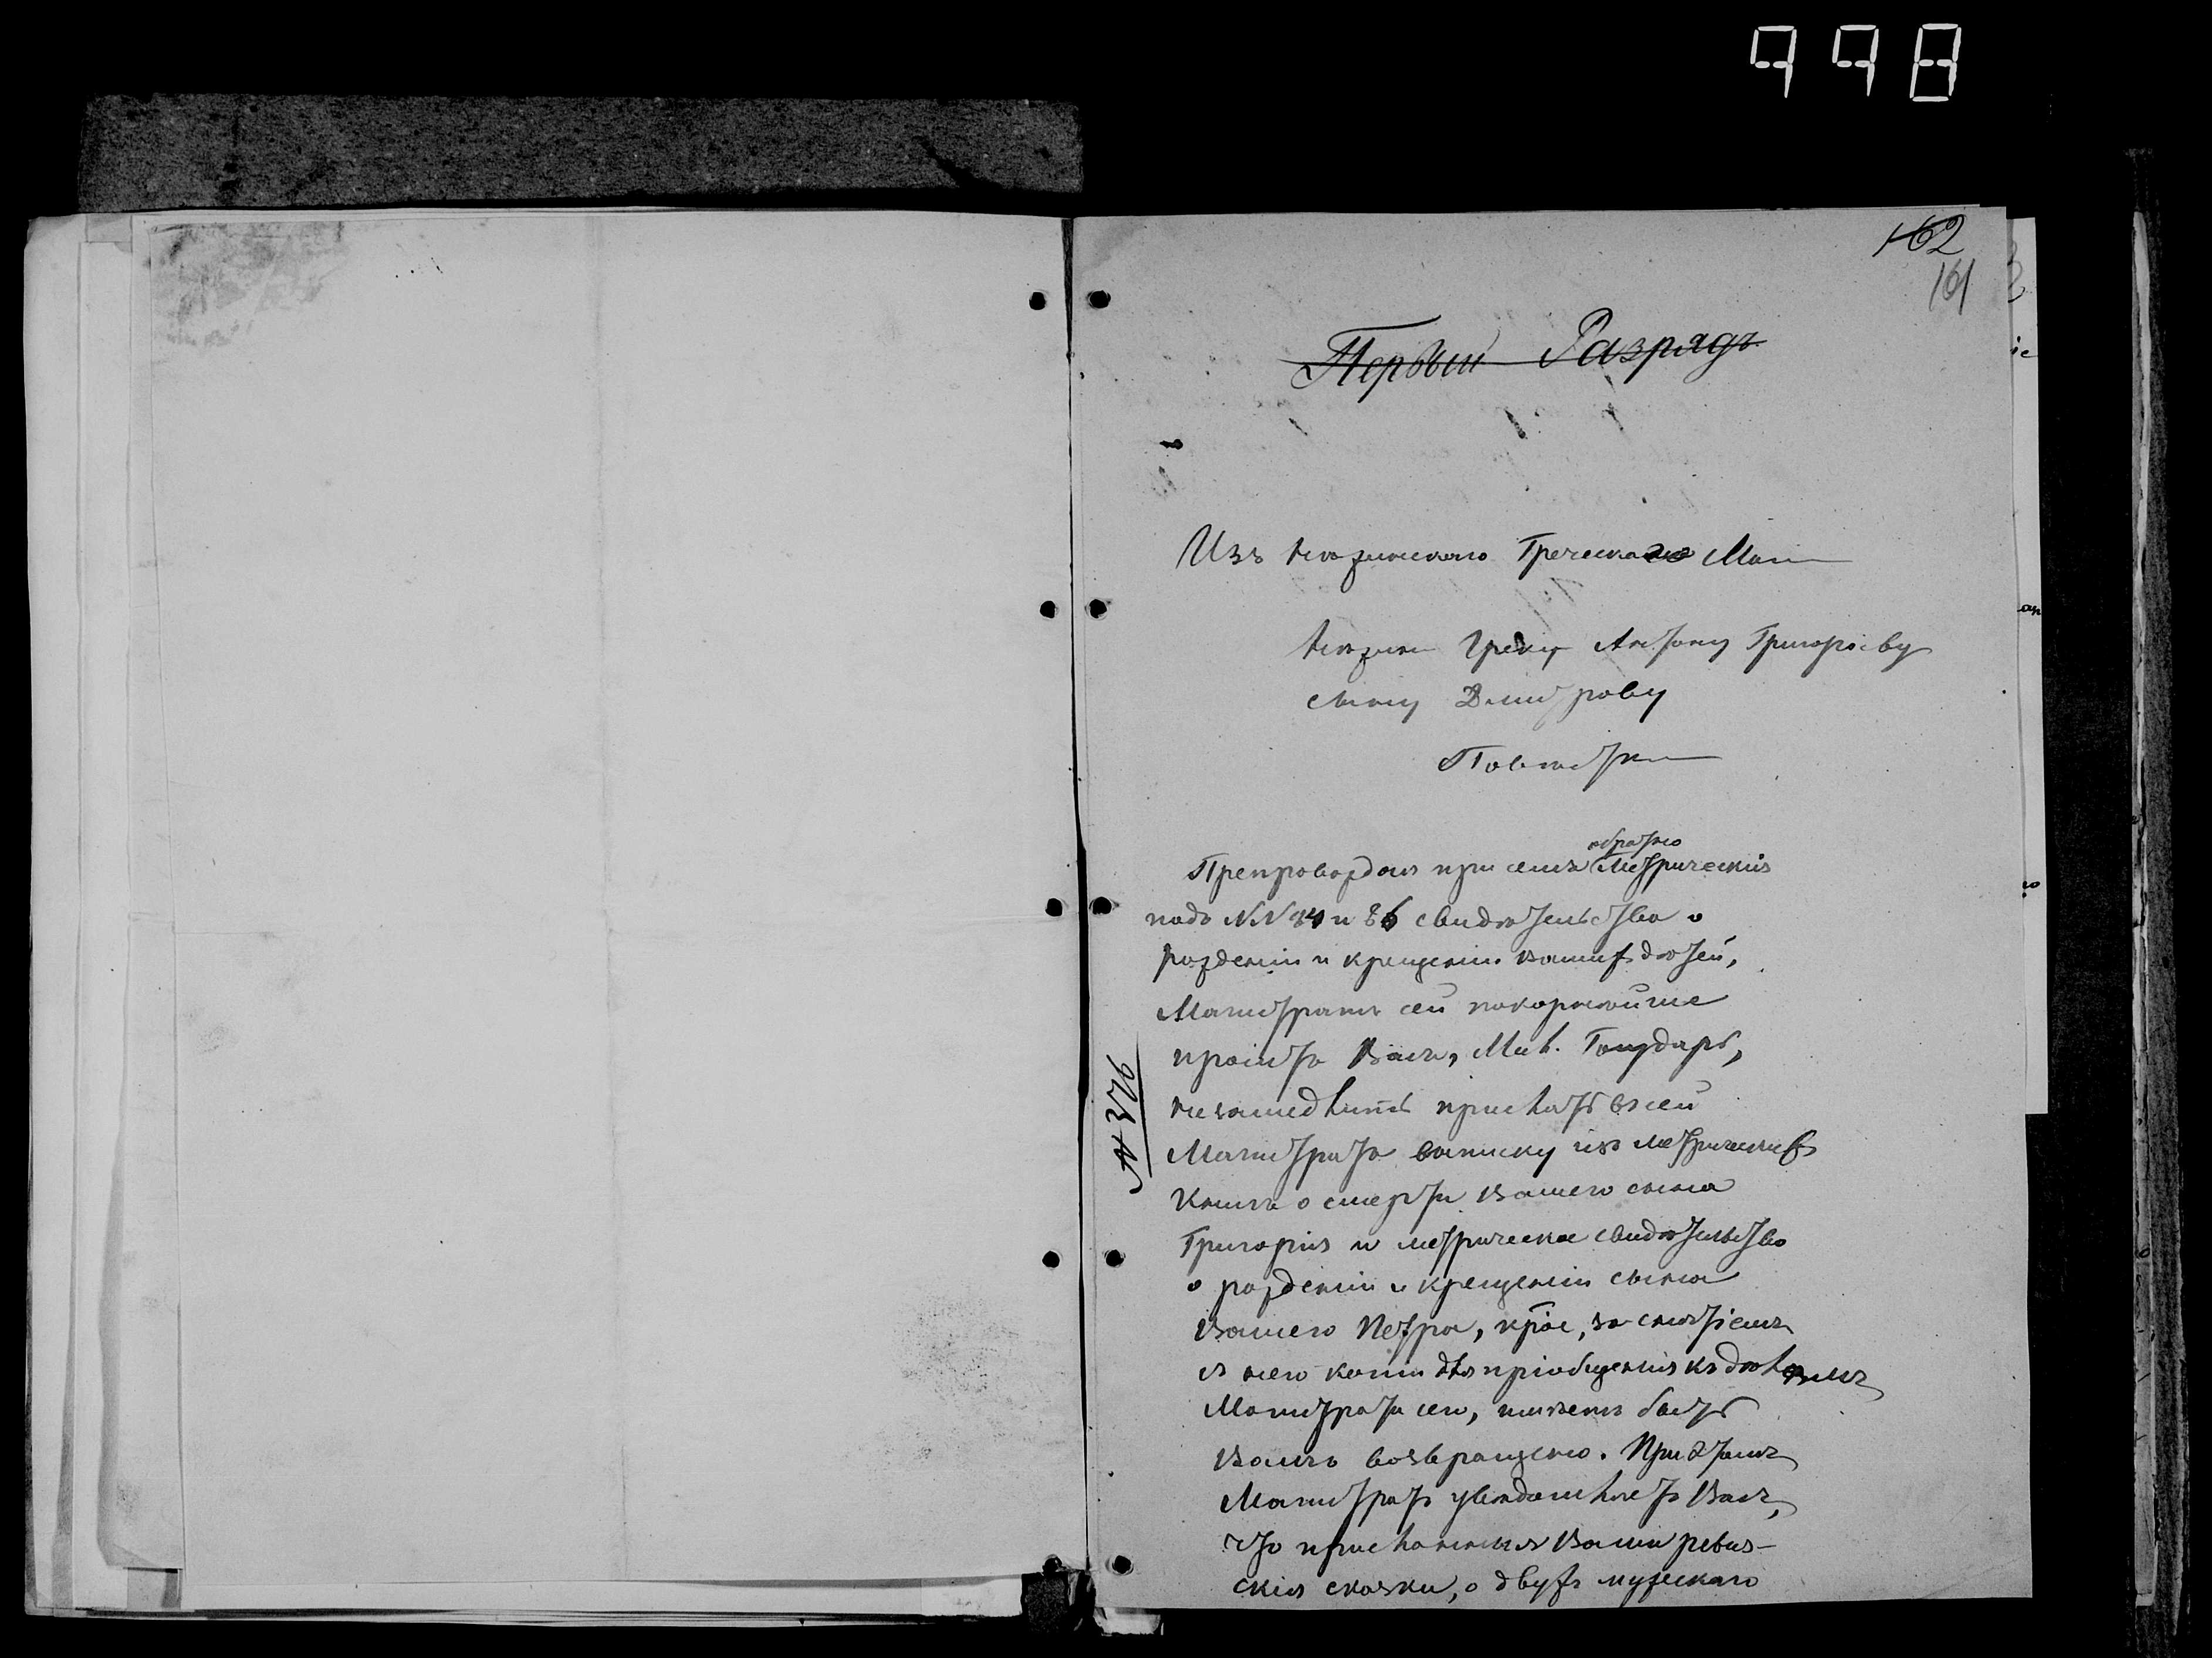 998
162
161
Первый Разрядъ
Изъ Нѣжинскаго Греческаго Маги
Нѣжин Греку Антону Григорієву
сыну Дмитрову
Повѣстка
обратно
Препровождая при семъ Метрическія
подъ №№ 84 и 86 свидѣтельства о
рожденіи и крещеніи вашихъ дѣтей,
Магистратъ сей покорнѣйше
проситъ Васъ, Мил. Государь,
незамедлить прислать въ сей
Магистратъ выписку изъ метрическихъ
Книгъ о смерти Вашего сына
Григорія и метрическое свидѣтельство
о рожденіи и крещеніи сына
Вашего Петра, кřое, за снятіемъ
съ него копіи для пріобщенія къ дѣламъ
Магистрата сего, имѣетъ быть
Вамъ возвращено. При этомъ
Магистратъ увѣдомляетъ Васъ,
что присланныя Вами ревиз-
скія сказки, о двухъ мужескаго
№ 326